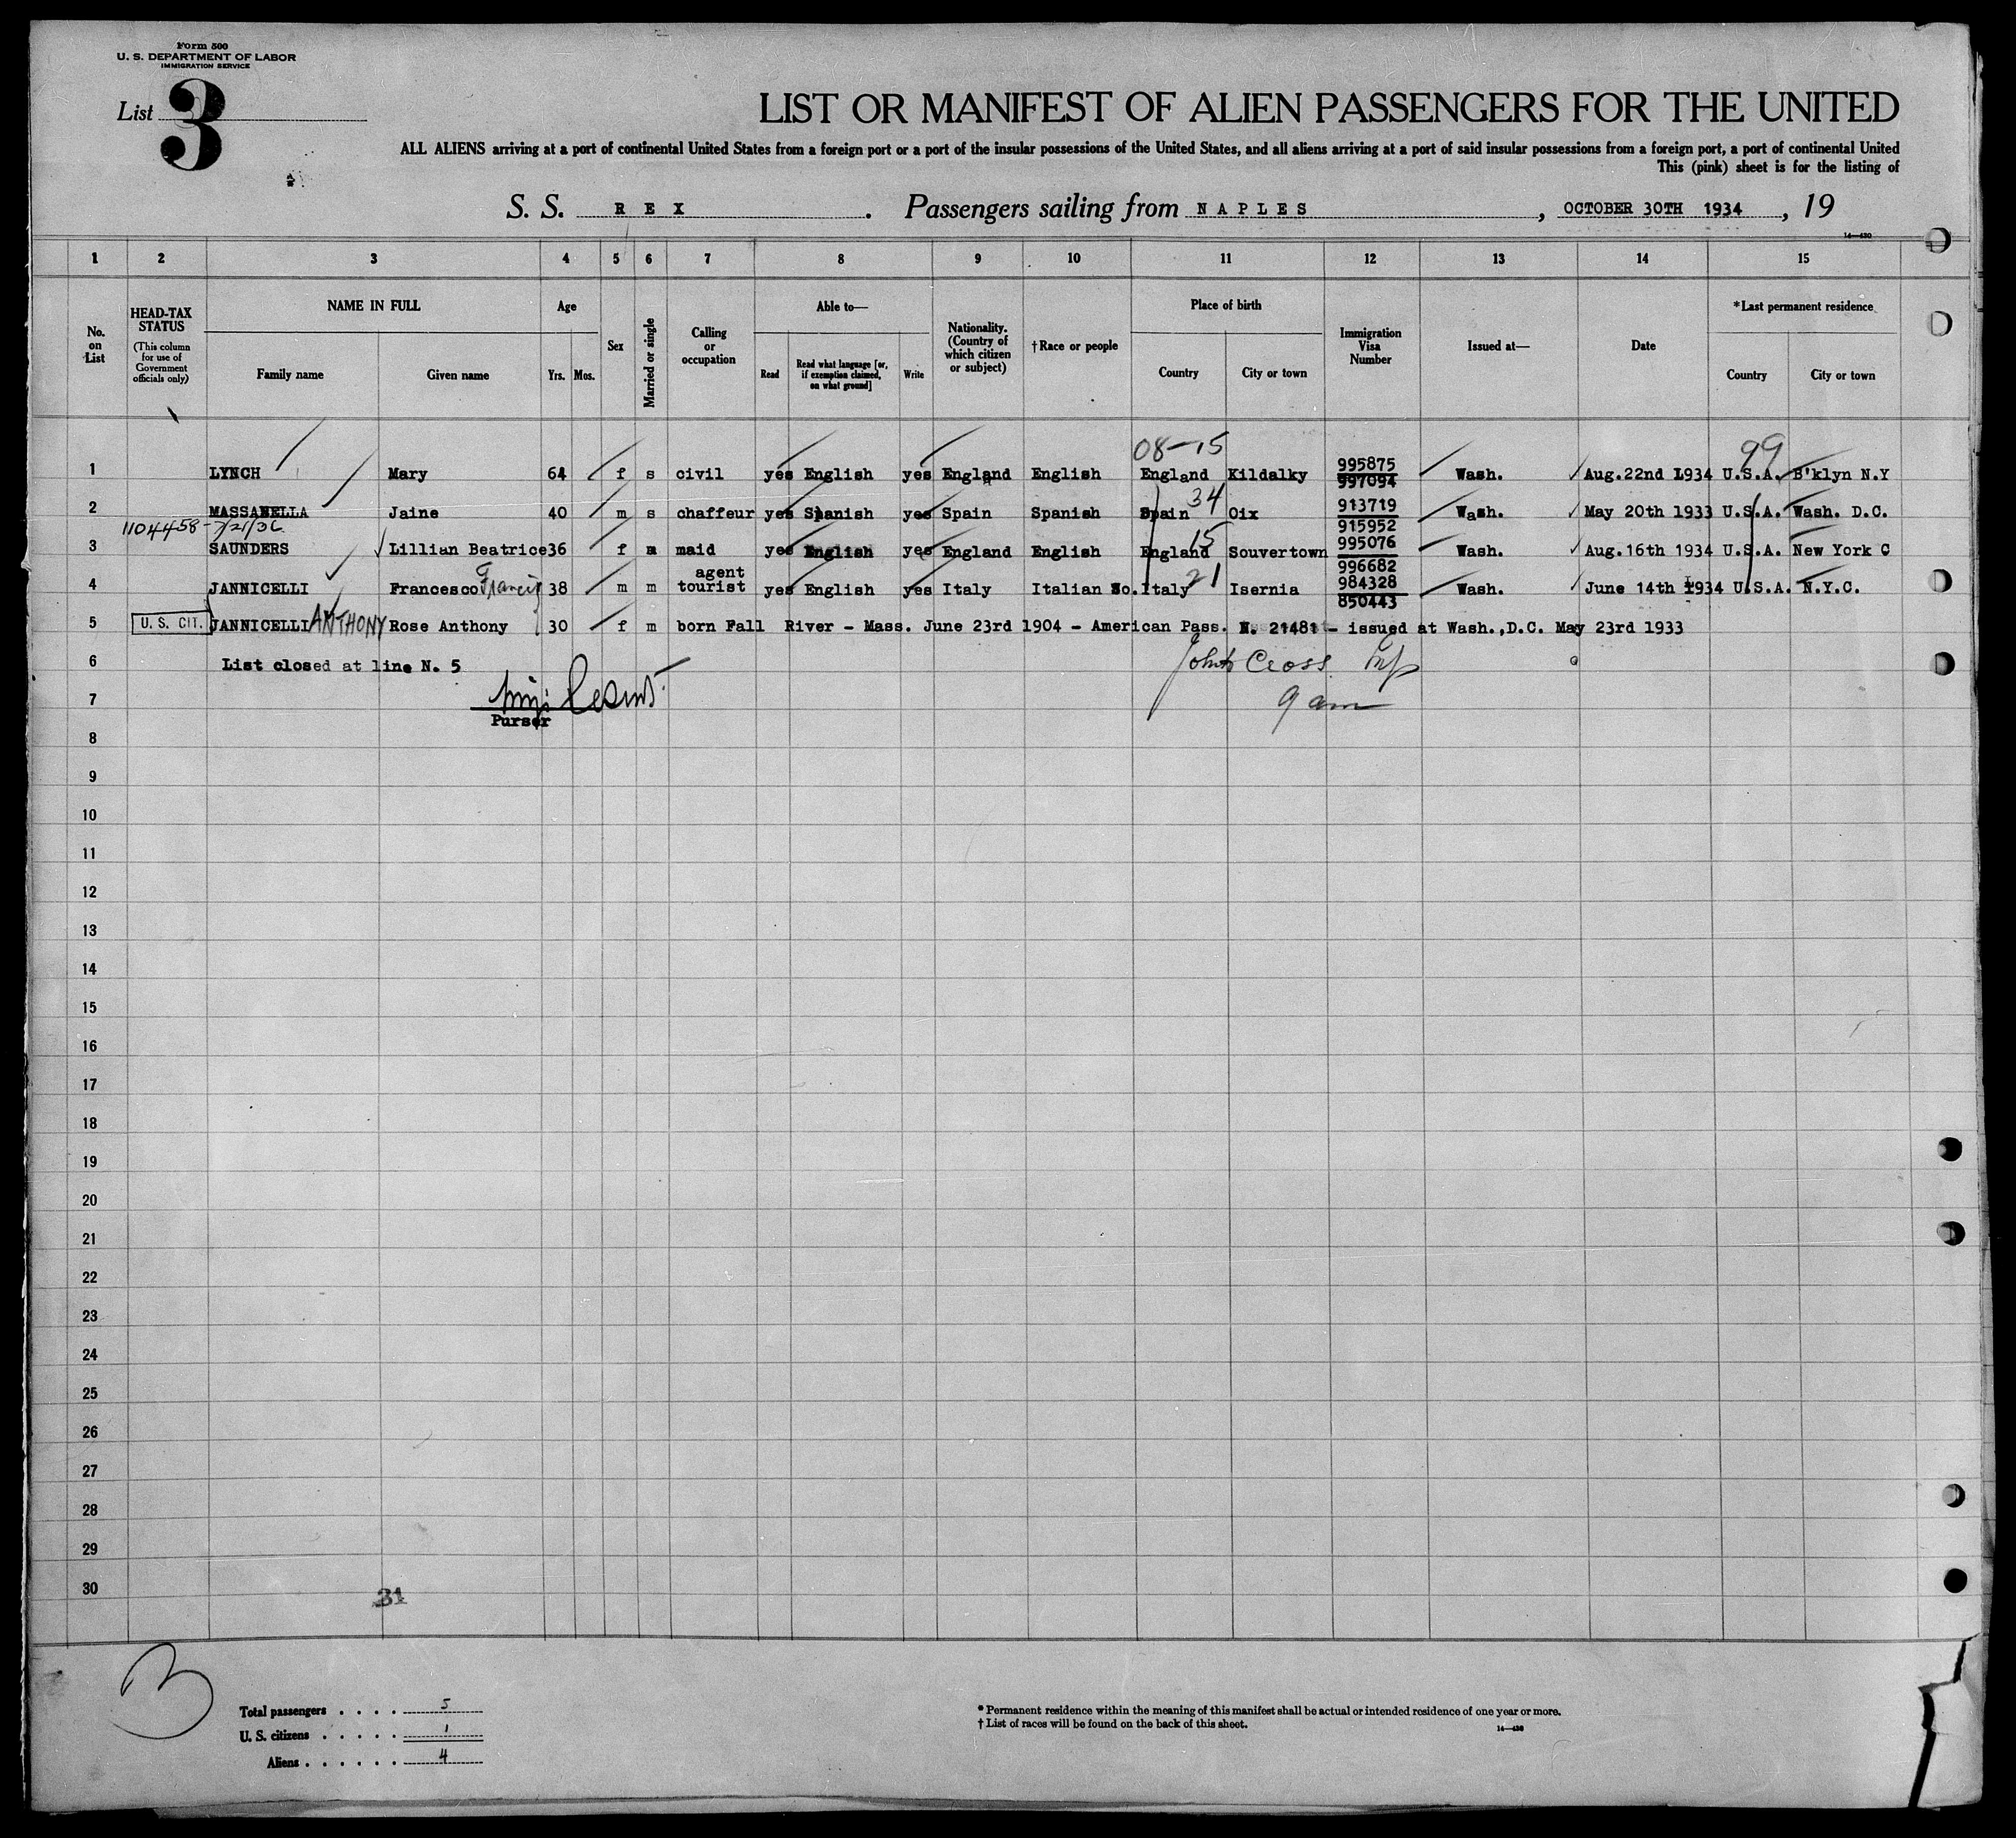 Form 500
U. S. DEPARTMENT OF LABOR
IMMIGRATION SERVICE
List 3
LIST OR MANIFEST OF ALIEN PASSENGERS FOR THE UNITED
ALL ALIENS arriving at a port of continental United States from a foreign port or a port of the insular possessions of the United States, and all aliens arriving at a port of said insular possessions from a foreign port, a port of continental United
This (pink) sheet is for the listing of
S. S. R E X . Passengers sailing from N A P L E S , OCTOBER 30TH 1934 , 19
14—430
1 2 3 4 5 6 7 8 9 10 11 12 13 14 15
No. on List
HEAD-TAX STATUS
(This column for use of Government officials only)
NAME IN FULL
Family name Given name
Age
Yrs. Mos.
Sex
Married or single
Calling or occupation
Able to—
Read
Read what language [or, if exemption claimed, on what ground]
Write
Nationality. (Country of which citizen or subject)
†Race or people
Place of birth
Country City or town
Immigration Visa Number
Issued at—
Date
*Last permanent residence
Country City or town
08-15 99
1 LYNCH Mary 64 f s civil yes English yes England English England Kildalky 995875 997094 Wash. Aug.22nd 1934 U.S.A. B'klyn N.Y
34
2 MASSANELLA Jaine 40 m s chaffeur yes Spanish yes Spain Spanish Spain Oix 913719 915952 Wash. May 20th 1933 U.S.A. Wash. D.C.
1104458-7/21/36
15
3 SAUNDERS Lillian Beatrice 36 f maid yes English yes England English England Souvertown 995076 996682 Wash. Aug.16th 1934 U.S.A. New York C
21
4 JANNICELLI Francesco Francis 38 m m agent tourist yes English yes Italy Italian So. Italy Isernia 984328 850443 Wash. June 14th 1934 U.S.A. N.Y.C.
5 U. S. CIT. JANNICELLI ANTHONY Rose Anthony 30 f m born Fall River - Mass. June 23rd 1904 - American Pass. N. 21481 - issued at Wash.,D.C. May 23rd 1933
6 List closed at line N. 5 John Cross Insp
7 9 am
Purser
8
9
10
11
12
13
14
15
16
17
18
19
20
21
22
23
24
25
26
27
28
29
30
31
3
Total passengers . . . . 5
U. S. citizens . . . . . 1
Aliens . . . . . . 4
* Permanent residence within the meaning of this manifest shall be actual or intended residence of one year or more.
† List of races will be found on the back of this sheet.
14—430